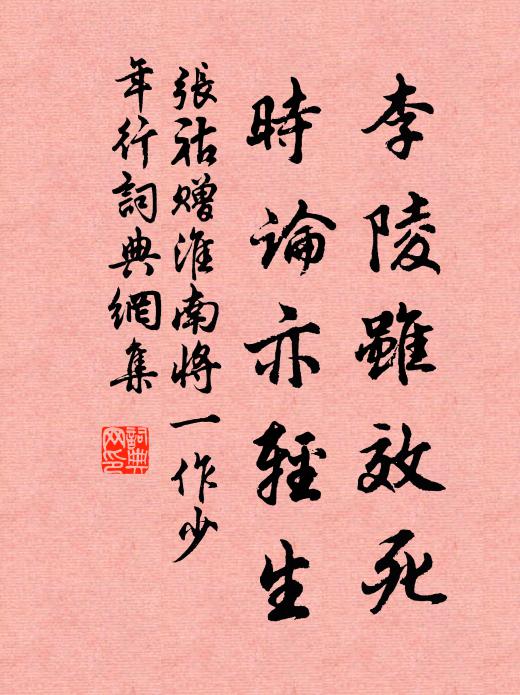 李陵雖效死
時論亦輕生
張祜贈淮南將一作少
年行詞典網集
詞典
网印